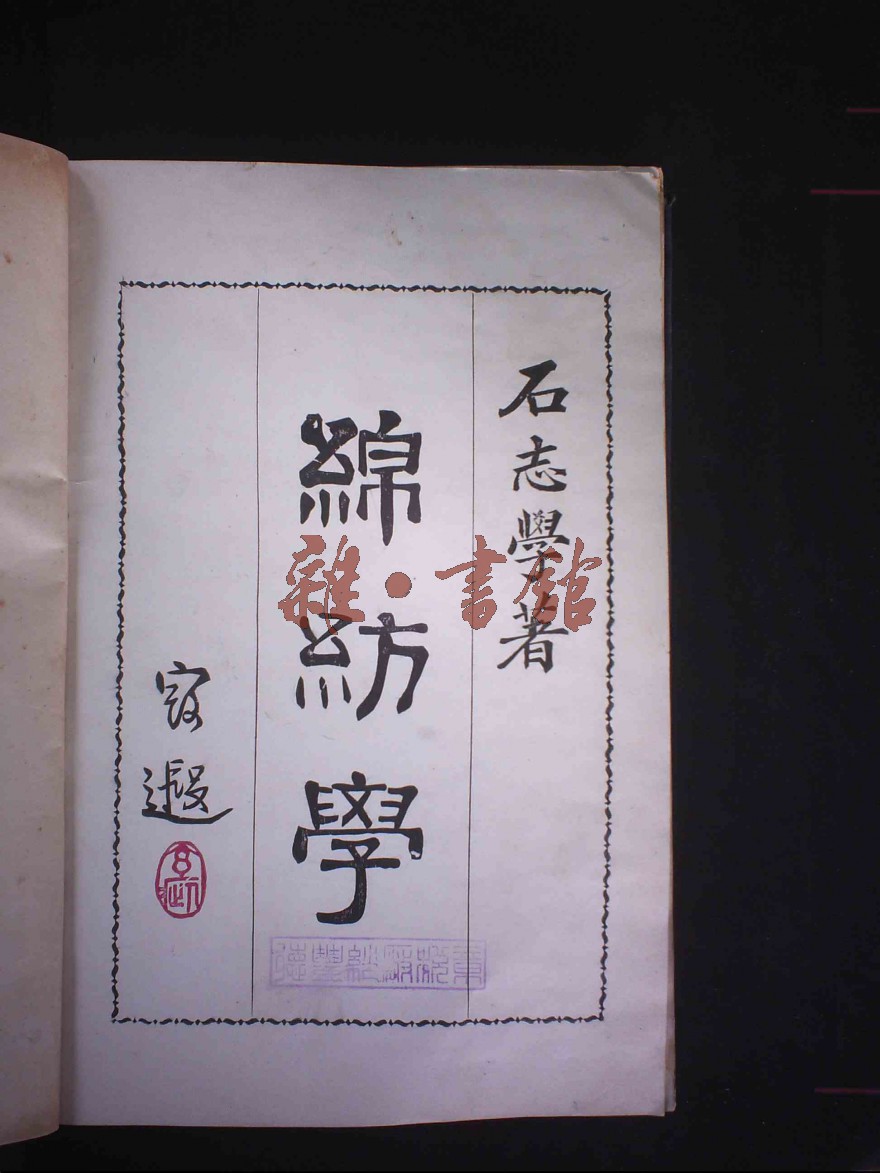 石志學著
綿紡學
寇遐
雜·書館